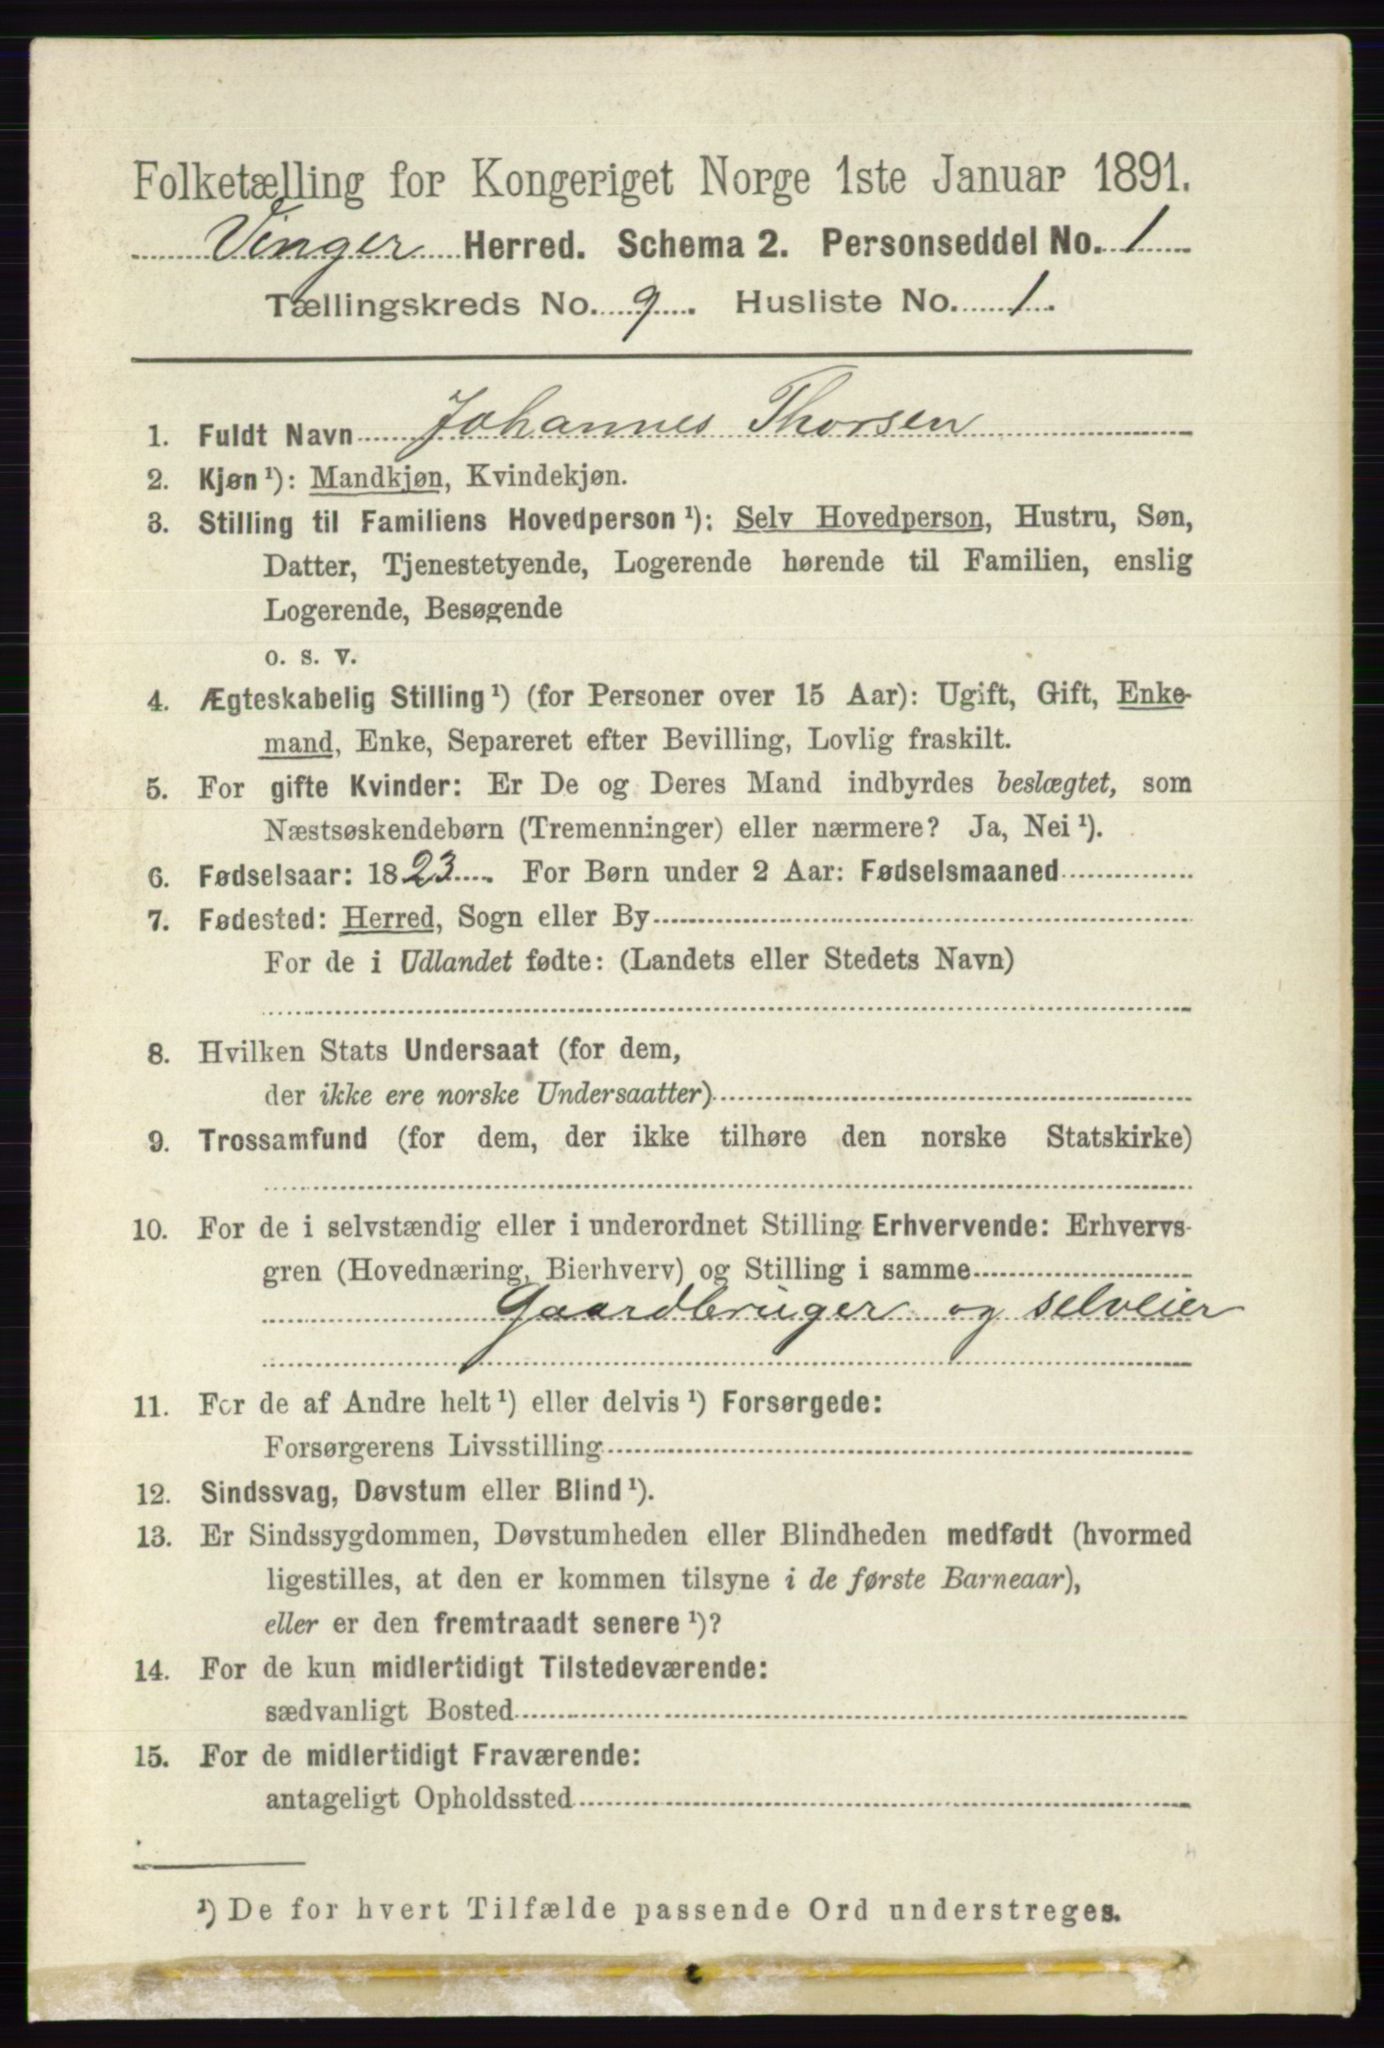 Folketælling for Kongeriget Norge 1ste Januar 1891.
Vinger Herred. Schema 2. Personseddel No. 1
Tællingskreds No. 9. Husliste No. 1.
1. Fuldt Navn Johannes Thorsen
2. Kjøn ¹): Mandkjøn, Kvindekjøn.
3. Stilling til Familiens Hovedperson ¹): Selv Hovedperson, Hustru, Søn,
Datter, Tjenestetyende, Logerende hørende til Familien, enslig
Logerende, Besøgende
o. s. v.
4. Ægteskabelig Stilling ¹) (for Personer over 15 Aar): Ugift, Gift, Enke-
mand, Enke, Separeret efter Bevilling, Lovlig fraskilt.
5. For gifte Kvinder: Er De og Deres Mand indbyrdes beslægtet, som
Næstsøskendebørn (Tremenninger) eller nærmere? Ja, Nei ¹).
6. Fødselsaar: 1823. For Børn under 2 Aar: Fødselsmaaned
7. Fødested: Herred, Sogn eller By
For de i Udlandet fødte: (Landets eller Stedets Navn)
8. Hvilken Stats Undersaat (for dem,
der ikke ere norske Undersaatter)
9. Trossamfund (for dem, der ikke tilhøre den norske Statskirke)
10. For de i selvstændig eller i underordnet Stilling Erhvervende: Erhvervs-
gren (Hovednæring, Bierhverv) og Stilling i samme
Gaardbruger og selveier
11. For de af Andre helt ¹) eller delvis ¹) Forsørgede:
Forsørgerens Livsstilling
12. Sindssvag, Døvstum eller Blind ¹).
13. Er Sindssygdommen, Døvstumheden eller Blindheden medfødt (hvormed
ligestilles, at den er kommen tilsyne i de første Barneaar),
eller er den fremtraadt senere ¹)?
14. For de kun midlertidigt Tilstedeværende:
sædvanligt Bosted
15. For de midlertidigt Fraværende:
antageligt Opholdssted
¹) De for hvert Tilfælde passende Ord understreges.